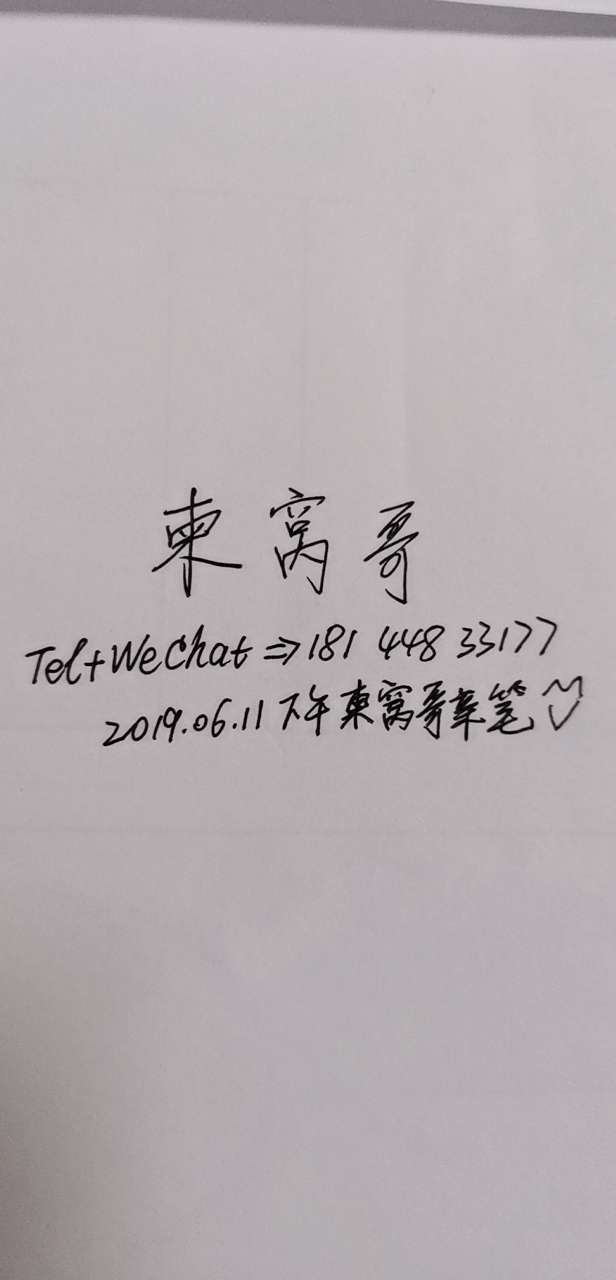 東窝哥
Tel+WeChat⇒181 448 33177
2019.06.11下午東窝哥亲笔